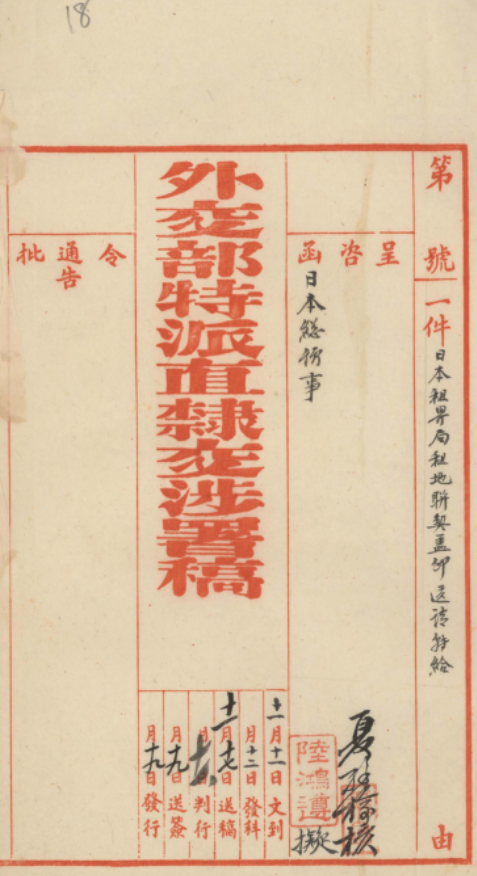 18
第 號
一件 日本租界局租地聯契蓋印送請轉給 由
呈 咨 函
日本總領事
夏 核
陸鴻遵 擬
外交部特派直隸交涉署稿
十一月十一日文到
月十二日發科
十一月十七日送稿
月十六日判行
月十九日送簽
月十九日發行
令 通告 批